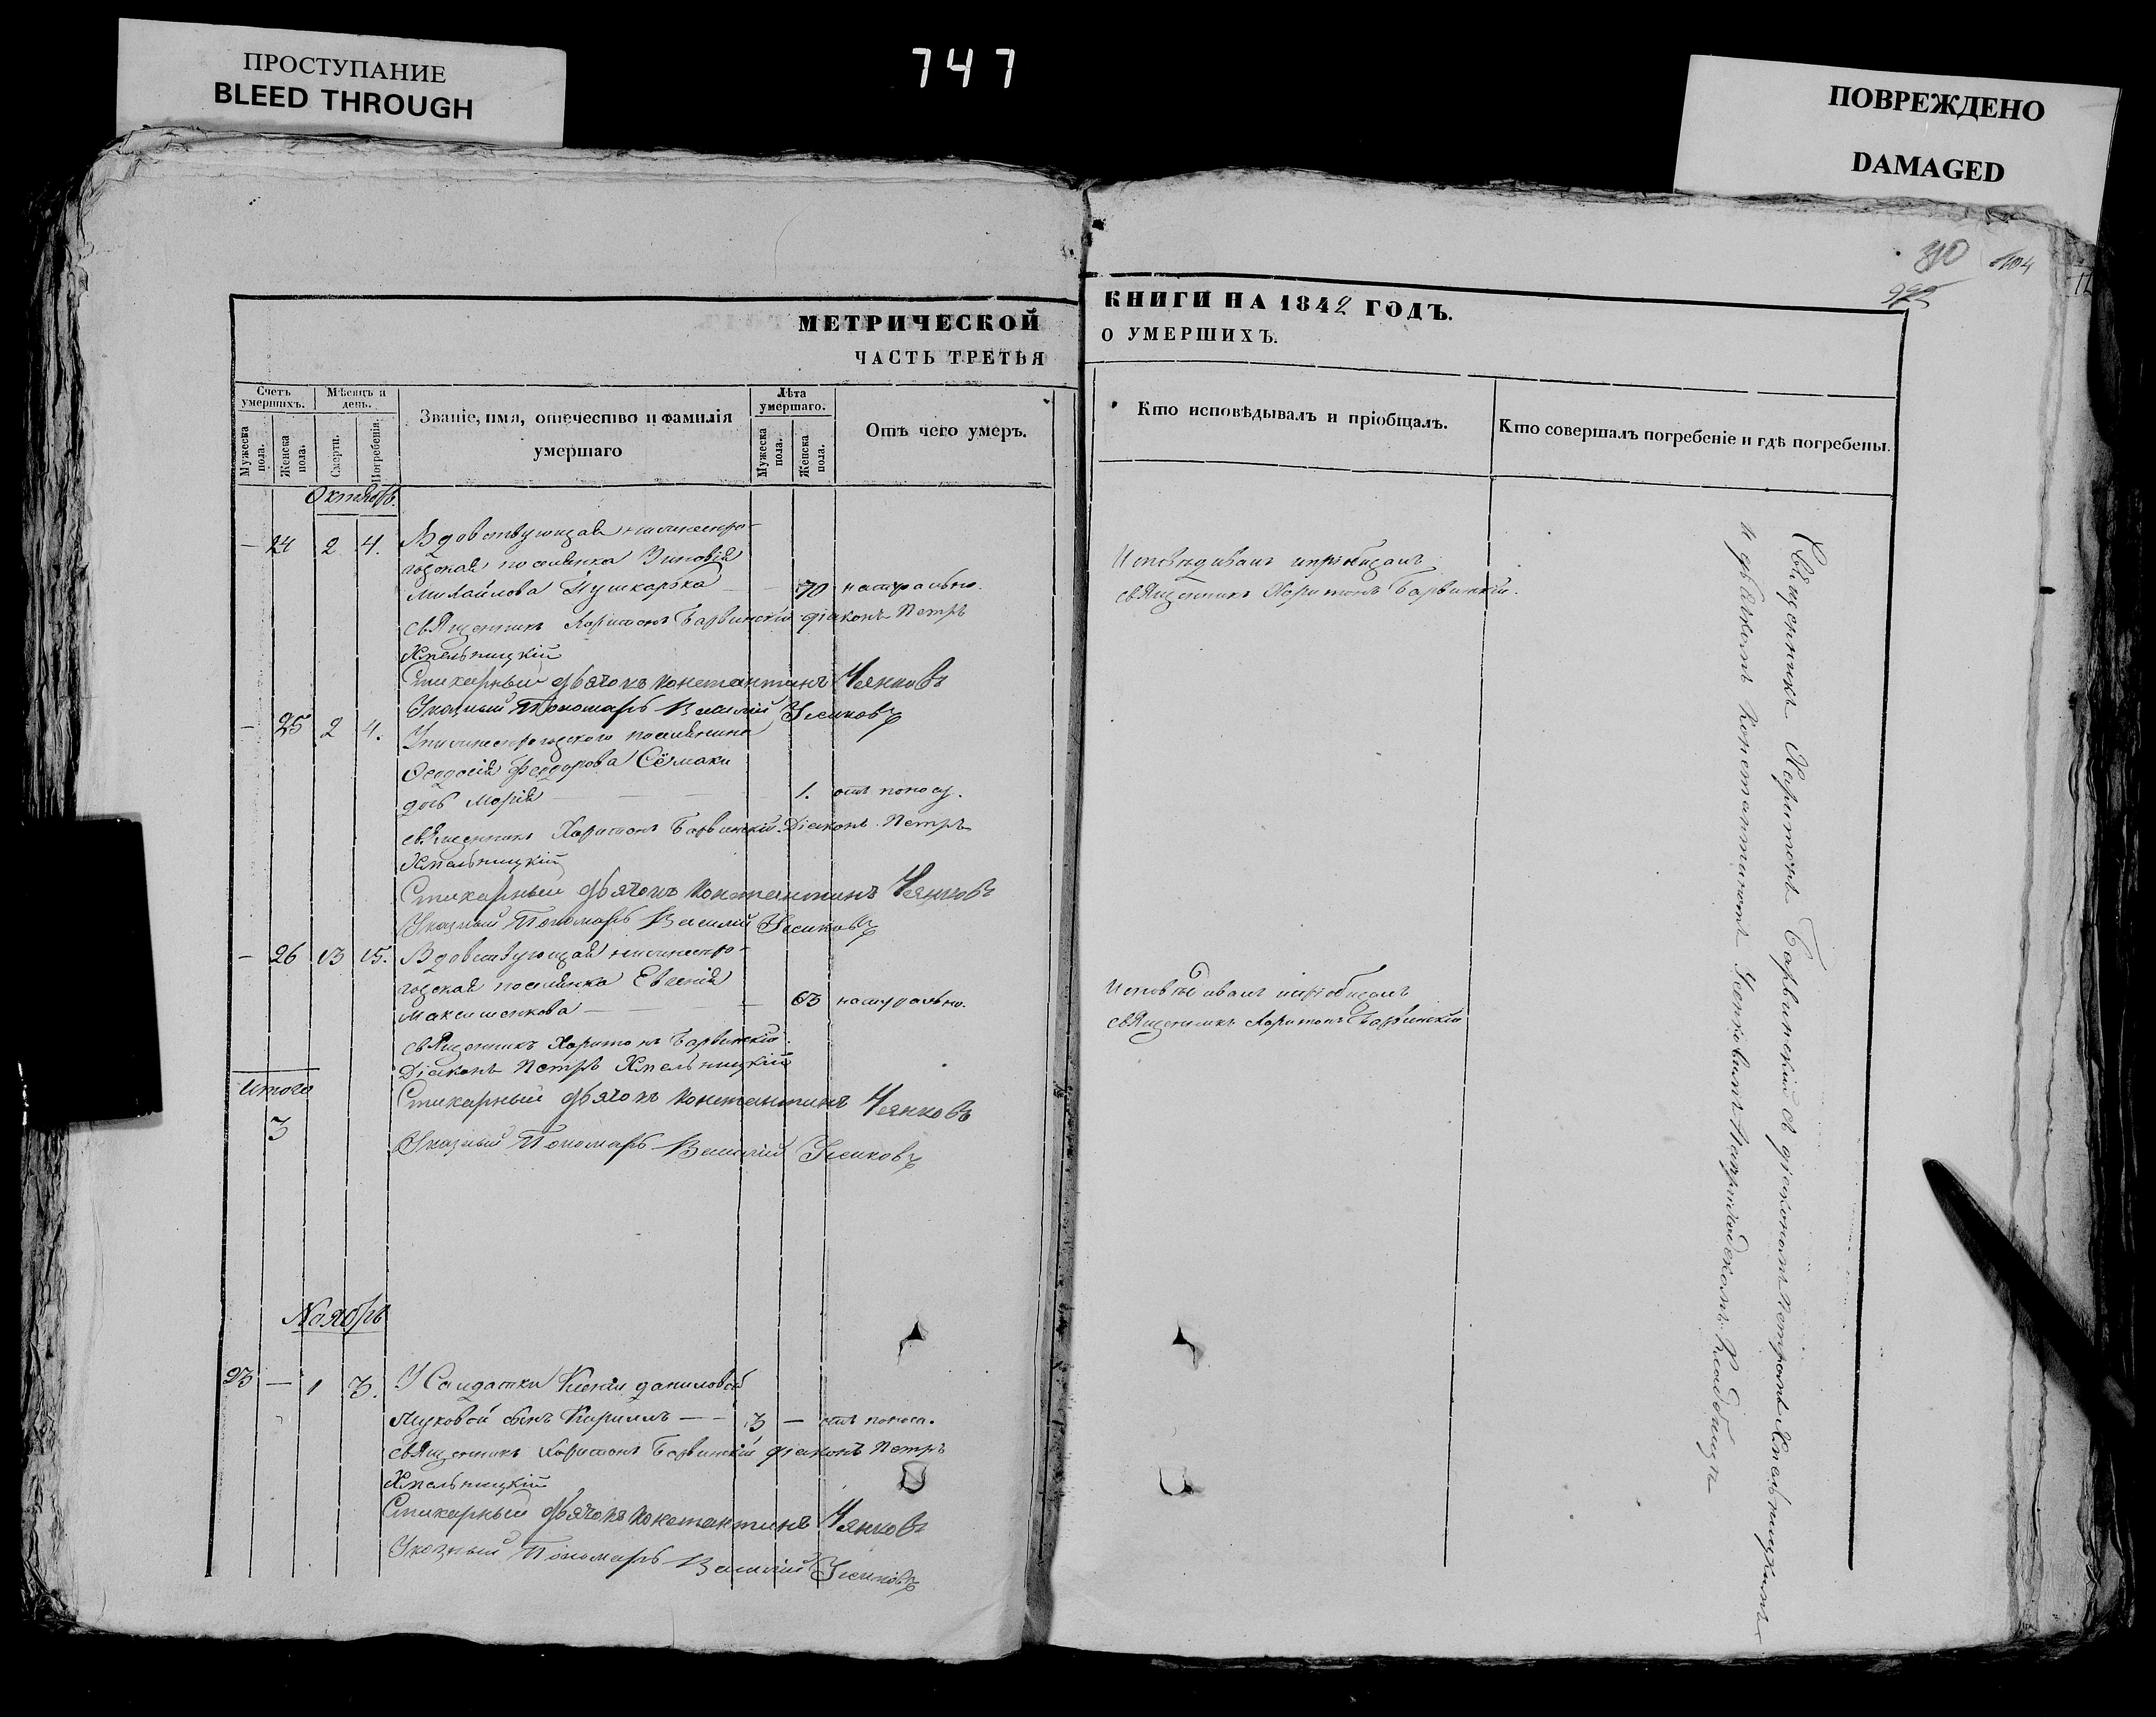 ПРОСТУПАНИЕ
BLEED THROUGH
747
ПОВРЕЖДЕНО
DAMAGED
МЕТРИЧЕСКОЙ
ЧАСТЬ ТРЕТЬЯ
Счетъ умершихъ.
Мужеска пола.
Женска пола.
Мѣсяцъ и день.
Смерти.
Погребенія.
Званіе, имя, отечество и фамилія
умершаго
Лѣта умершаго.
Мужеска пола.
Женска пола.
Отъ чего умеръ.
Октябрь.
— 24 2 4. Вдовствующая
поселянка Зиновія
Михайлова Пушкарька — 70 натурально.
священникъ Харитонъ Барвинскій діаконъ Петръ
Хмельницкій
Стихарный дьячокъ Константинъ
Указный Пономарь Василій
— 25 2 4. поселянина
Феодосія Феодорова
дочь Марія — 1. отъ поносу.
священникъ Харитонъ Барвинскій. Діаконъ Петръ
Хмельницкій
Стихарный дьячокъ Константинъ
Указный Пономарь Василій
— 26 13 15. Вдовствующая
поселянка Евгенія
Максименкова — 63 натурально.
священникъ Харитонъ Барвинскій.
Діаконъ Петръ Хмельницкій
Итого
3
Стихарный дьячокъ Константинъ
Указный Пономарь Василій
Ноябрь
23 — 1 3. У Салдатки Ксеніи Даниловой
сынъ Кириллъ — 3 — отъ поноса.
священникъ Харитонъ Барвинскій діаконъ Петръ
Хмельницкій
Стихарный дьячокъ Константинъ
Указный Пономарь Василій
КНИГИ НА 1842 ГОДЪ.
О УМЕРШИХЪ.
Кто исповѣдывалъ и пріобщалъ.
Кто совершалъ погребеніе и гдѣ погребены.
Исповѣдивалъ и пріобщалъ
священникъ Харитонъ Барвинскій.
Исповѣдивалъ и пріобщалъ
священникъ Харитонъ Барвинскій
Священникъ Харитонъ Барвинскій съ діакономъ Петромъ Хмельницкимъ
и дьячкомъ Константиномъ на приходскомъ кладбищѣ